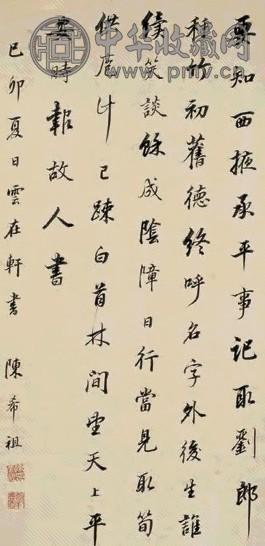 要知西掖承平事記取劉郎
種竹初舊德終呼名字外後生誰
續笑談餘成陰障日行當見取筍
供庖計已疎白首林間望天上平
安時報故人書
己卯夏日雲在軒書 陳希祖
中华收藏网